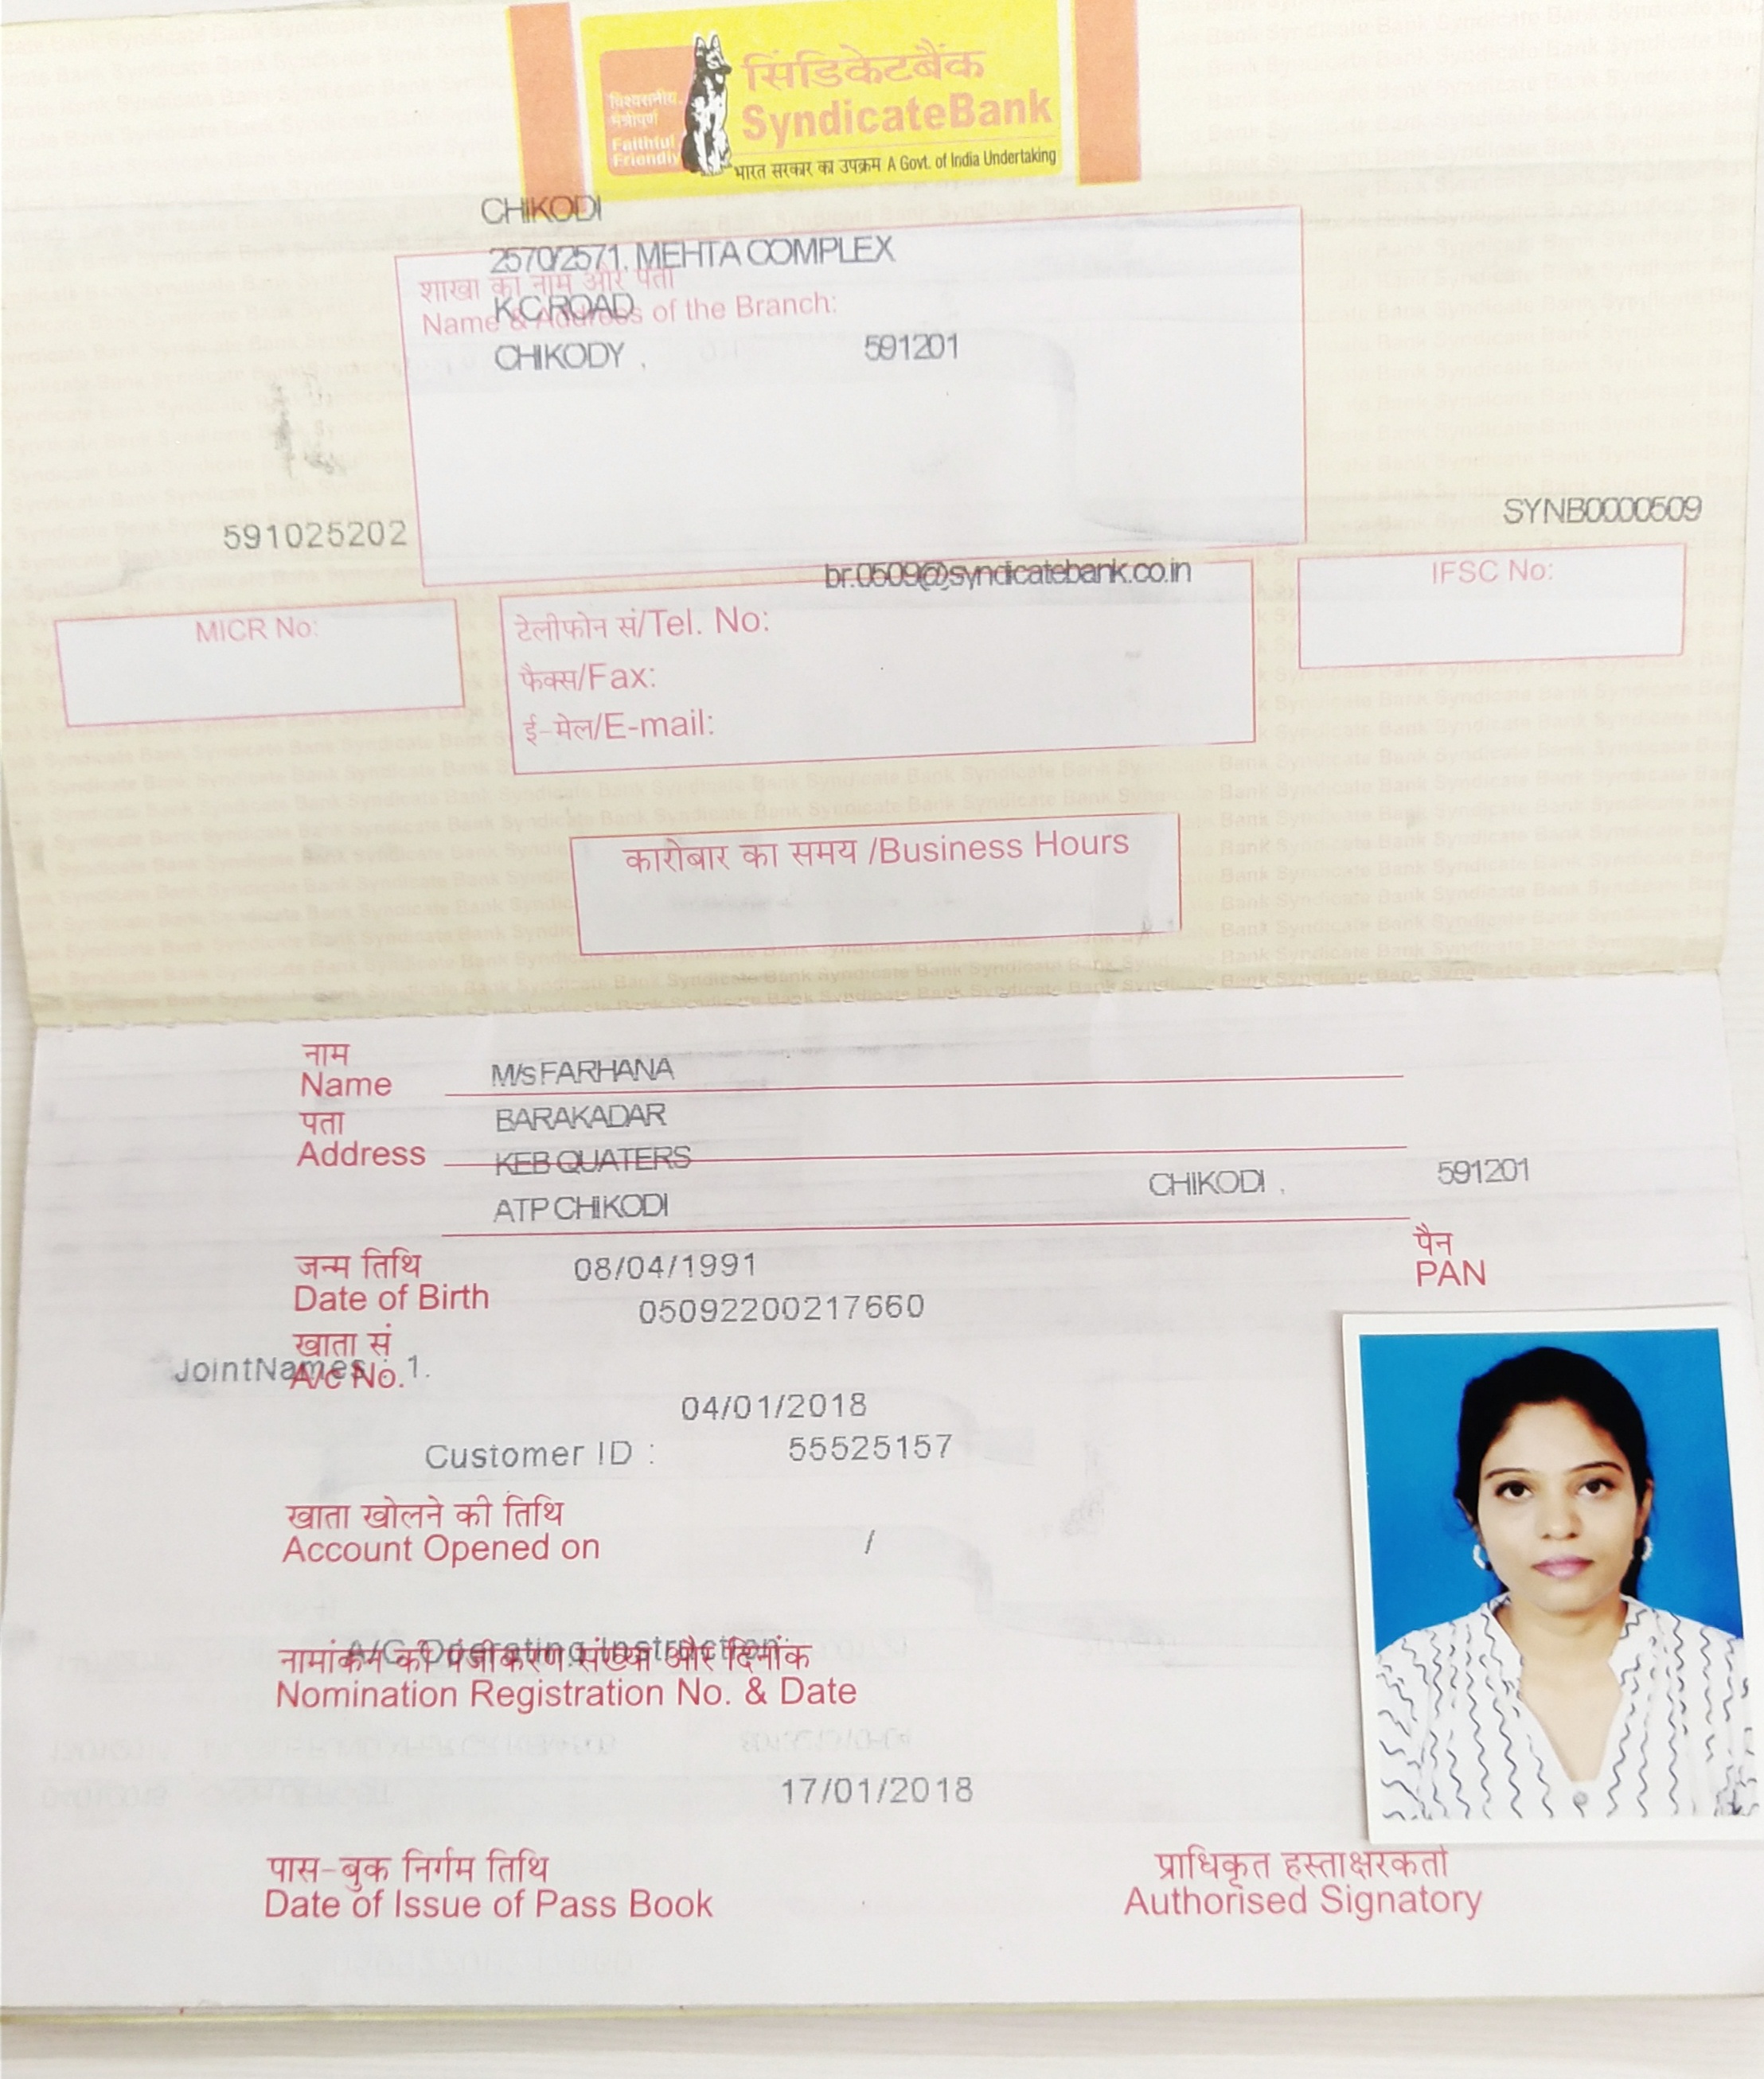 विश्वसनीय
मैत्रीपूर्ण
Faithful
Friendly
सिंडिकेटबैंक
SyndicateBank
भारत सरकार का उपक्रम A Govt. of India Undertaking
CHIKODI
2570/2571, MEHTA COMPLEX
शाखा का नाम और पता
K C ROAD
Name & Address of the Branch:
CHIKODY , 591201
591025202
SYNB0000509
br.0509@syndicatebank.co.in
MICR No:
टेलीफोन सं/Tel. No:
फैक्स/Fax:
ई-मेल/E-mail:
IFSC No:
कारोबार का समय /Business Hours
नाम
Name M/s FARHANA
पता BARAKADAR
Address KEB QUATERS
ATP CHIKODI CHIKODI , 591201
जन्म तिथि 08/04/1991
Date of Birth
पैन
PAN
05092200217660
खाता सं
A/c No.
JointNames : 1.
04/01/2018
Customer ID : 55525157
खाता खोलने की तिथि
Account Opened on /
A/C Operating Instruction:
नामांकन की पंजीकरण संख्या और दिनांक
Nomination Registration No. & Date
17/01/2018
पास-बुक निर्गम तिथि
Date of Issue of Pass Book
प्राधिकृत हस्ताक्षरकर्ता
Authorised Signatory